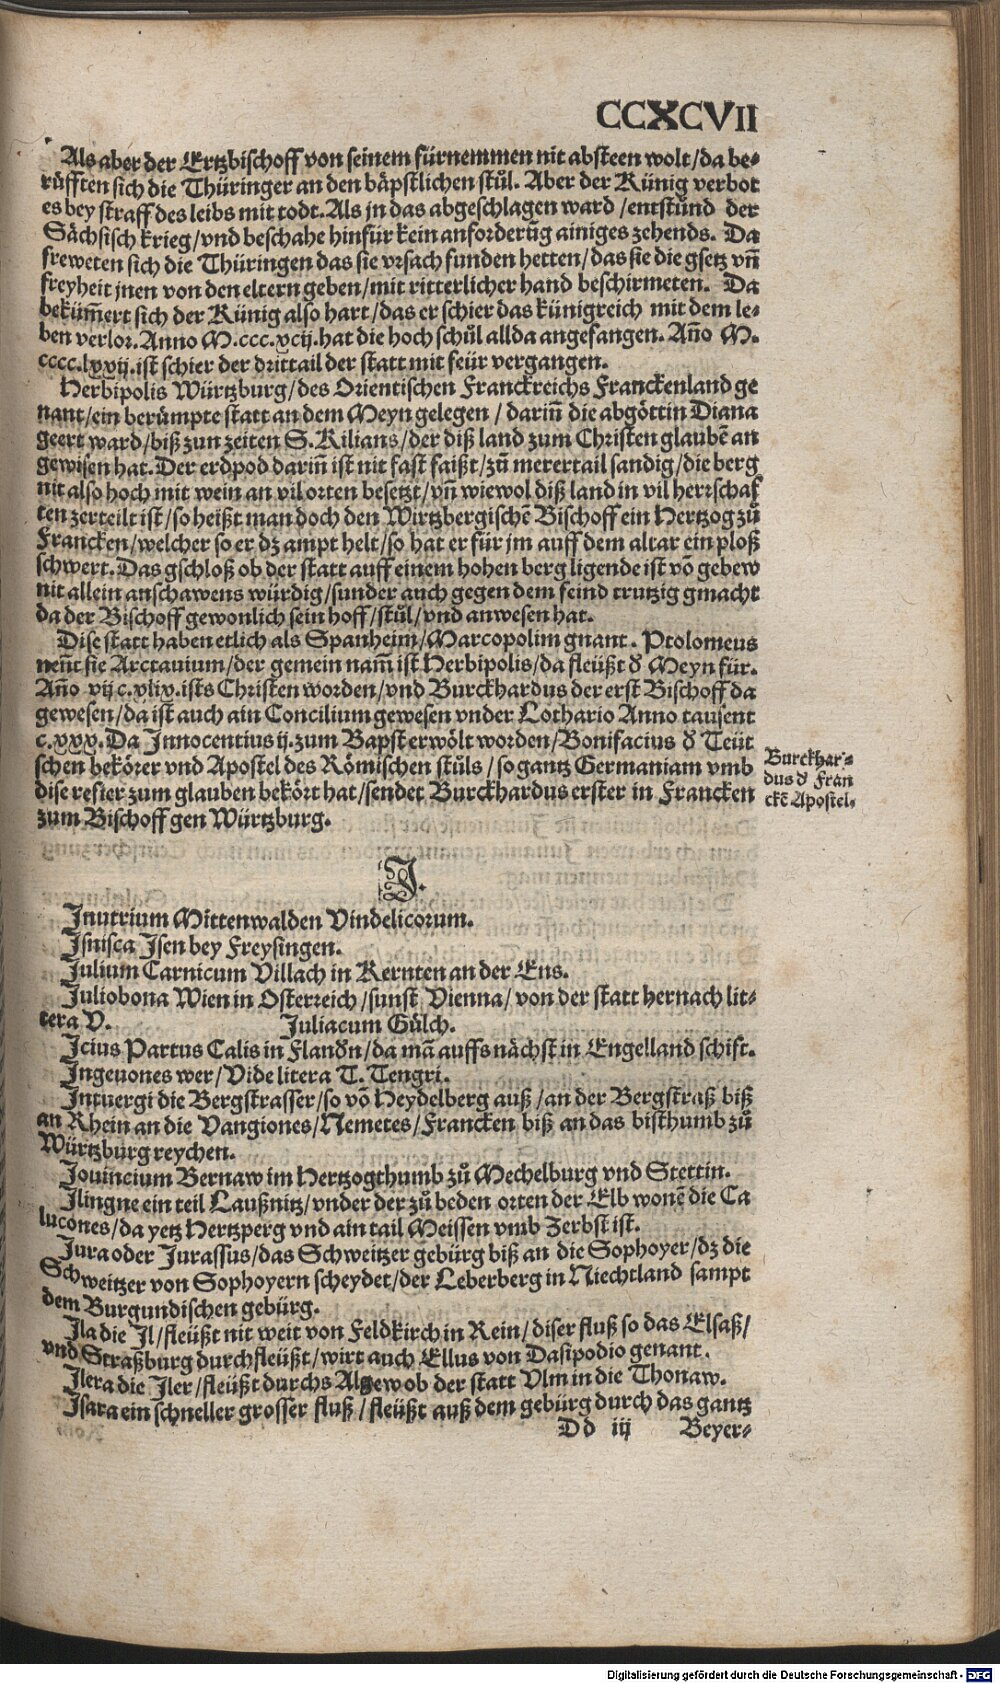 CCXCVII
Als aber der Ertzbischoff von seinem fürnemmen nit absteen wolt/da be⸗
rüfften sich die Thüringer an den bäpstlichen stůl. Aber der Künig verbot
es bey straff des leibs mit todt. Als jn das abgeschlagen ward/entstůnd der
Sächsisch krieg/vnd beschahe hinfür kein anforderũg ainiges zehends. Da
freweten sich die Thüringen das sie vrsach funden hetten/das sie die gsetz vñ
freyheit jnen von den eltern geben/mit ritterlicher hand beschirmeten. Da
bekům̃ert sich der Künig also hart/das er schier das künigreich mit dem le⸗
ben verlor. Anno M.ccc.xcij. hat die hoch schůl allda angefangen. Año M.
cccc.lxxij. ist schier der drittail der statt mit feür vergangen.
Herbipolis Würtzburg/des Orientischen Franckreichs Franckenland ge
nant/ein berümpte statt an dem Meyn gelegen/dariñ die abgöttin Diana
geert ward/biß zun zeiten S. Kilians/der diß land zum Christen glaubẽ an
gewisen hat. Der erdpod dariñ ist nit fast faißt/zů merertail sandig/die berg
nit also hoch mit wein an vil orten besetzt/vñ wiewol diß land in vil herrschaf
ten zerteilt ist/so heißt man doch den Wirtzbergischẽ Bischoff ein Hertzog zů
Francken/welcher so er dz ampt helt/so hat er für jm auff dem altar ein ploß
schwert. Das gschloß ob der statt auff einem hohen berg ligende ist võ gebew
nit allein anschawens würdig/sunder auch gegen dem feind trutzig gmacht
da der Bischoff gewonlich sein hoff/stůl/vnd anwesen hat.
Dise statt haben etlich als Spanheim/Marcopolim gnant. Ptolomeus
neñt sie Arctauium/der gemein nam̃ ist Herbipolis/da fleüßt d̃ Meyn für.
Año vij c.xlix. ists Christen worden/vnd Burckhardus der erst Bischoff da
gewesen/da ist auch ain Concilium gewesen vnder Lothario Anno tausent
c.xxx. Da Innocentius ij. zum Bapst erwölt worden/Bonifacius d̃ Teüt
schen bekörer vnd Apostel des Römischen stůls/so gantz Germaniam vmb
dise refier zum glauben bekört hat/sendet Burckhardus erster in Francken
zum Bischoff gen Würtzburg.
Burckhar⸗
dus d̃ Fran
ckẽ Apostel.
J.
Inutrium Mittenwalden Vindelicorum.
Isnisca Isen bey Freysingen.
Julium Carnicum Villach in Kernten an der Ens.
Juliobona Wien in Osterreich/sunst Vienna/von der statt hernach lit⸗
tera V. Juliacum Gülch.
Icius Partus Calis in Flandn/da mã auffs nächst in Engelland schift.
Ingeuones wer/Vide litera T. Tengri.
Intuergi die Bergstrasser/so võ Heydelberg auß/an der Bergstraß biß
an Rhein an die Vangiones/Nemetes/Francken biß an das bisthumb zů
Würtzburg reychen.
Jouincium Bernaw im Hertzogthumb zů Mechelburg vnd Stettin.
Ilingne ein teil Laußnitz/vnder der zů beden orten der Elb wonẽ die Ca
lucones/da yetz Hertzperg vnd ain tail Meissen vmb Zerbst ist.
Jura oder Jurassus/das Schweitzer gebürg biß an die Sophoyer/dz die
Schweitzer von Sophoyern scheydet/der Leberberg in Niechtland sampt
dem Burgundischen gebürg.
Ila die Il/fleüßt nit weit von Feldkirch in Rein/diser fluß so das Elsaß/
vnd Straßburg durchfleüßt/wirt auch Ellus von Dasipodio genant.
Ilera die Iler/fleüßt durchs Algew ob der statt Vlm in die Thonaw.
Isara ein schneller grosser fluß/fleüßt auß dem gebürg durch das gantz
Dd iij Beyer⸗
Digitalisierung gefördert durch die Deutsche Forschungsgemeinschaft - DFG